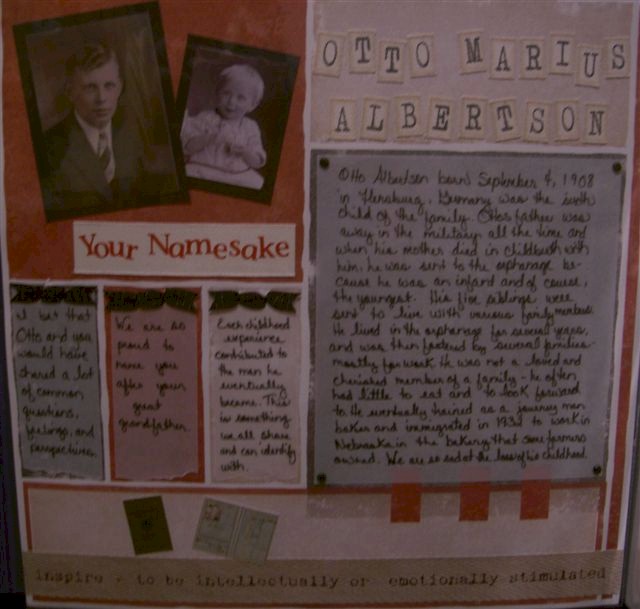 OTTO MARIUS
ALBERTSON
Otto Albertson born September 4, 1908
in Flensburg, Germany was the sixth
child of the family. Ottos father was
away in the military all the time and
when his mother died in childbirth with
him, he was sent to the orphanage be-
cause he was an infant and of course,
the youngest. His five siblings were
sent to live with various family members.
He lived in the orphanage for several years,
and was then fostered by several families
mostly for work. He was not a loved and
cherished member of a family - he often
had little to eat and to look forward
to. He eventually trained as a journey man
baker and immigrated in to work in
Nebraska in the bakery that some farmers
owned. We are so sad at the loss of his childhood.
Your Namesake
I bet that
Otto and you
would have
shared a lot
of common
questions,
feelings, and
perspectives.
We are so
proud to
name you
after your
great
grandfather.
Each childhood
experience
contributed to
the man he
eventually
became. This
is something
we all share
and can identify
with.
inspire - to be intellectually or emotionally stimulated